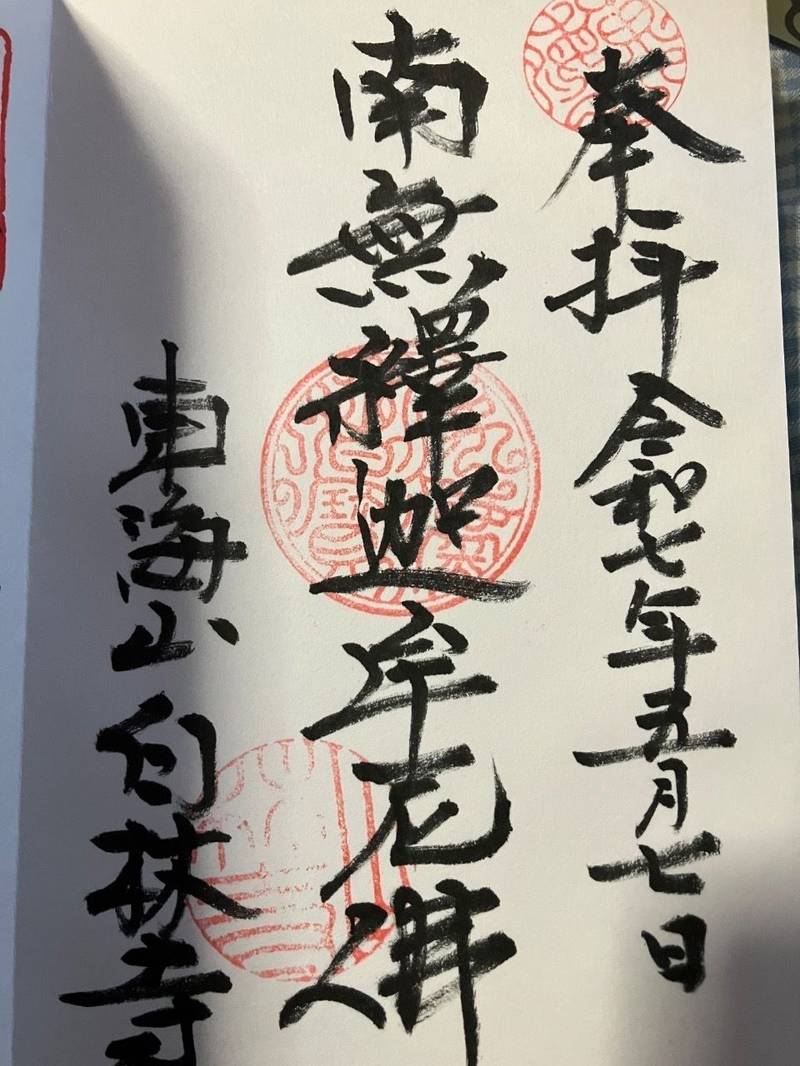 奉拝 令和七年五月七日
南無釋迦牟尼佛
東海山 白林寺